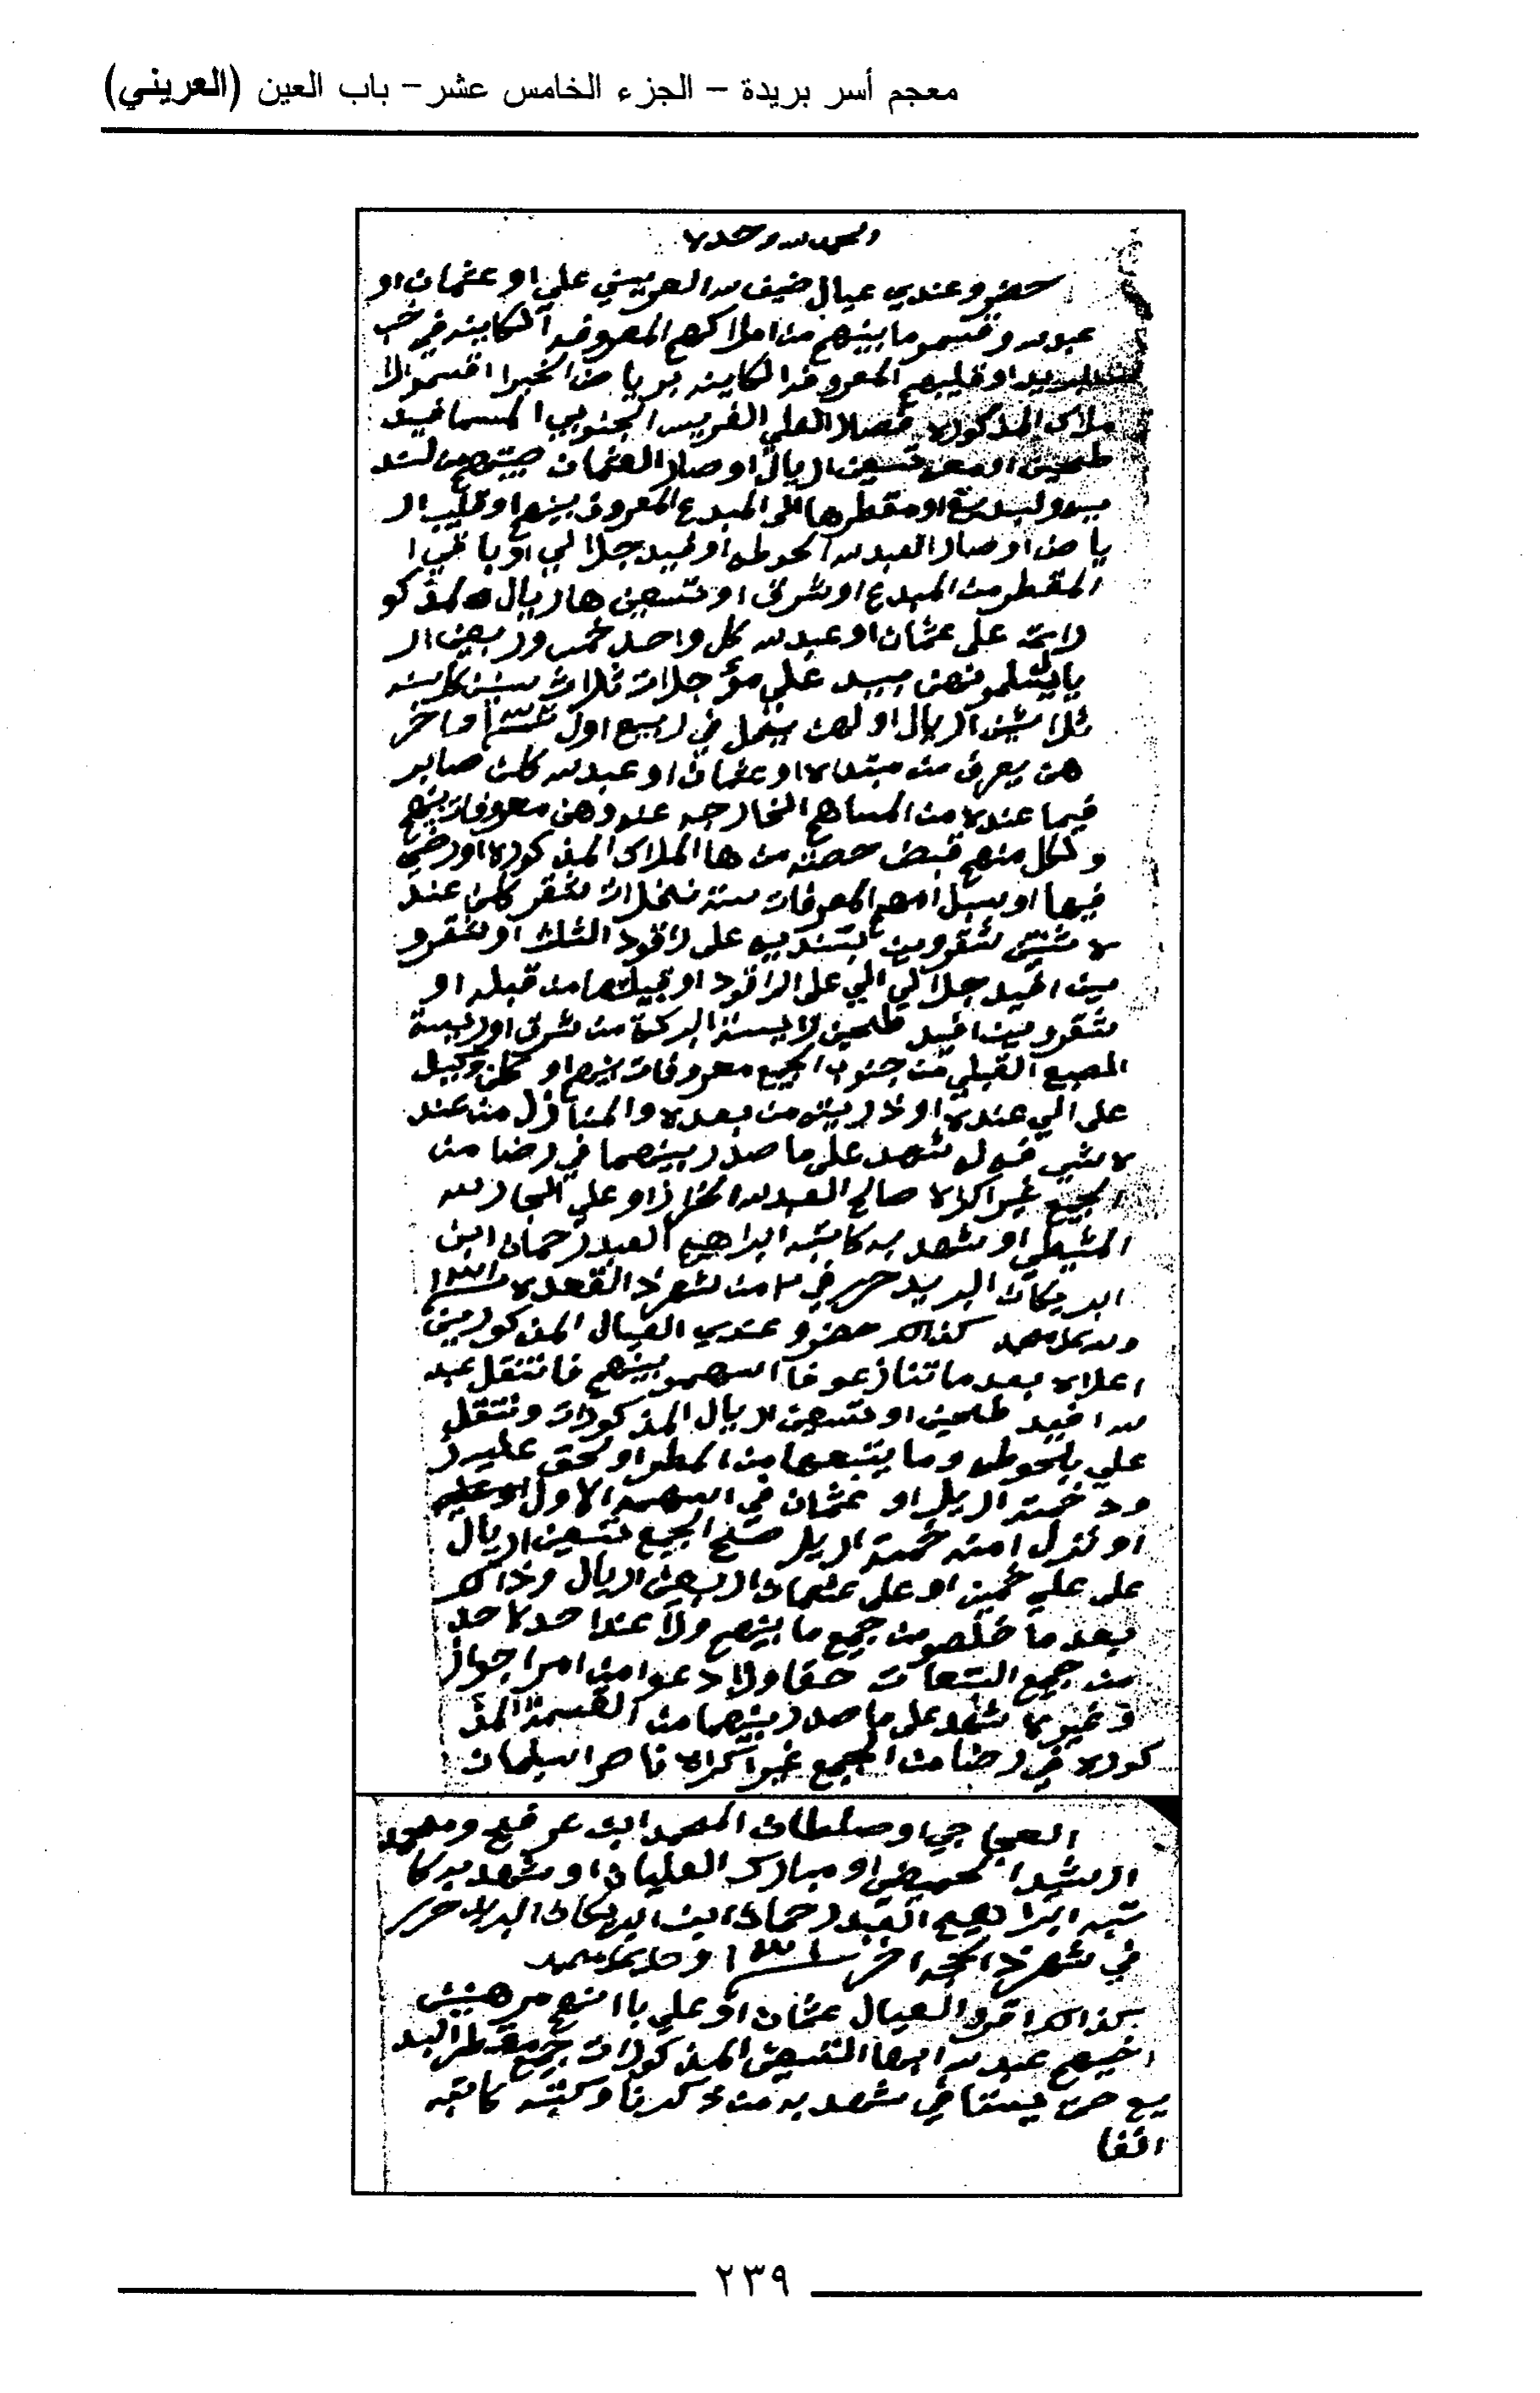 معجم أسر بريدة – الجزء الخامس عشر – باب العين (العريني)
الحمد لله وحده
حضرو عندي عيال ضيف الله العريني علي او عثمان او
عبدالله وقسمو ما بينهم من املاكهم المعروفه الكاينه في خب
البريدي او قليبهم المعروفه الكاينه برياض الخبرا اقتسمو الا
ملاك المذكوره فصار العلي الغريس الجنوبي المسما فيد
طلحين او معه تسعين اريال او صار العثمان
او مقطرها الى المبدع المعروف بينهم او قليب الر
ياض او صار العبدالله الحوطه او فيد جلالي او باقي ا
المقطر من المبدع او شرق او تسعين هاريال المذكو
رات على عثمان او عبدالله كل واحد خمس وربعين ار
يال يسلمونهن بيد علي مؤجلات ثلاث سنين كل سنه
ثلاثين اريال اولهن يحل في ربيع اول او اخر
هن يعرف من مبتداه او عثمان او عبدالله كلن صابر
فيما عنده من المساهم الخارجه عنه وهن معروفات بينهم
ولكل منهم قبض حصته من ها الملاك المذكوره او رضي
فيها او سبل امهم المعروفات ستة نخلات شقر كلن عند
ه ثنتين شقروين على راقود الثلث او شقرو
ين افيد جلالي الي على الراقود او من قبله او
شقروين افيد طلحين البركة من شرق او
القبلي من جنوب الجميع معروفات بينهم او كلن وكيل
على الي عنده او ذريته من بعده والمنازل من عند
ه شي شهد على ما صدر بينهما في رضا من
الجميع غير اكراه صالح العبدالله الخراز او علي الجارالله
المشيطي او شهد به كاتبه ابراهيم العبدرحمان ابن
ابريكان البريد حرر في ٢ من شهر ذالقعده ١٣٣١
وصلى الله على محمد كذالك حضرو عندي العيال المذكورين
اعلاه بعد ما تنازعو فا اسهمو بينهم فانتقل عبد
الله افيد طلحين او تسعين اريال المذكورات ونتقل
علي بلحوطه وما يتبعها من المطر او لحق عليه ز
ود خمسة اريل او عثمان في اسهمه الاول او عليه
او نزل امنه خمسة اريل صح الجميع تسعين اريال
على علي خمسين او على عثمان اربعين اريال وذالك
بعد ما خلصو من جميع ما بينهم ولا عند احد لاحد
من جميع التبعات حقا ولا دعوا من امر اجواز
وغيره شهد على ما صدر بينهما من القسمة المذ
كوره في رضا من الجميع غير اكراه ناصر اسليمان
العجاجي او صلطان المحمد ابن عرفج ومحمد
الرشيد الحميضي او مبارك العليان او شهد به كا
تبه ابراهيم العبدرحمان ابن ابريكان البريد حرر
في شهر ذالحجه اخر ١٣٣١ وصلى الله على محمد
كذالك اقرو العيال عثمان او علي با انهم مرهنين
اخيهم عبدالله ابها التسعين المذكورات جميع مقطر البد
يع حتى يستافي شهد به من ذكرنا وكتبه كاتبه
انفا
٢٣٩